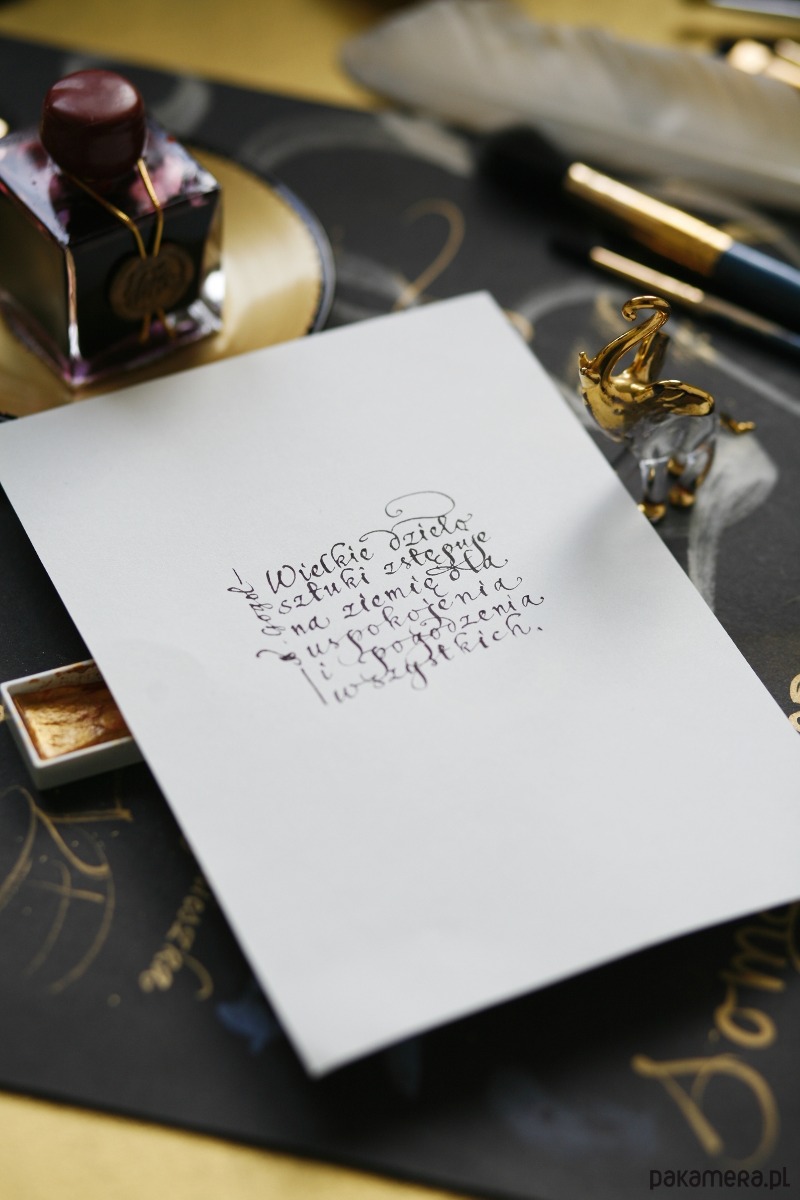 Wielkie dzieło
sztuki zstępuje
na ziemię dla
uspokojenia
i pogodzenia
wszystkich.
pakamera.pl